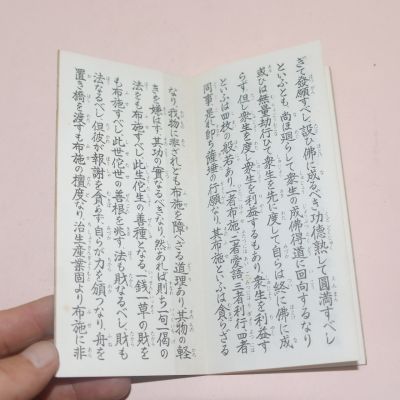 ぎて發願すべし、設ひ佛に成るべき功德熟して圓滿すべし
といふとも、尚ほ廻らして衆生の成佛得道に回向するなり
或ひは無量劫行ひて衆生を先に度して自らは終に佛に成
らず、但し衆生を度し衆生を利益するもあり、衆生を利益す
といふは四枚の般若あり、一者布施、二者愛語、三者利行、四者
同事、是れ則ち薩埵の行願なり、其布施といふは貪らざる
なり、我物に非ざれども布施を障へざる道理あり、其物の軽
きを嫌はず、其功の實なるべきなり、然あれば則ち一句一偈の
法をも布施すべし、此生佗生の善種となる、一錢一草の財を
も布施すべし、此世佗世の善根を兆す、法も財なるべし、財も
法なるべし、但彼が報謝を貪らず、自らが力を頒つなり、舟を
置き橋を渡すも布施の檀度なり、治生産業固より布施に非